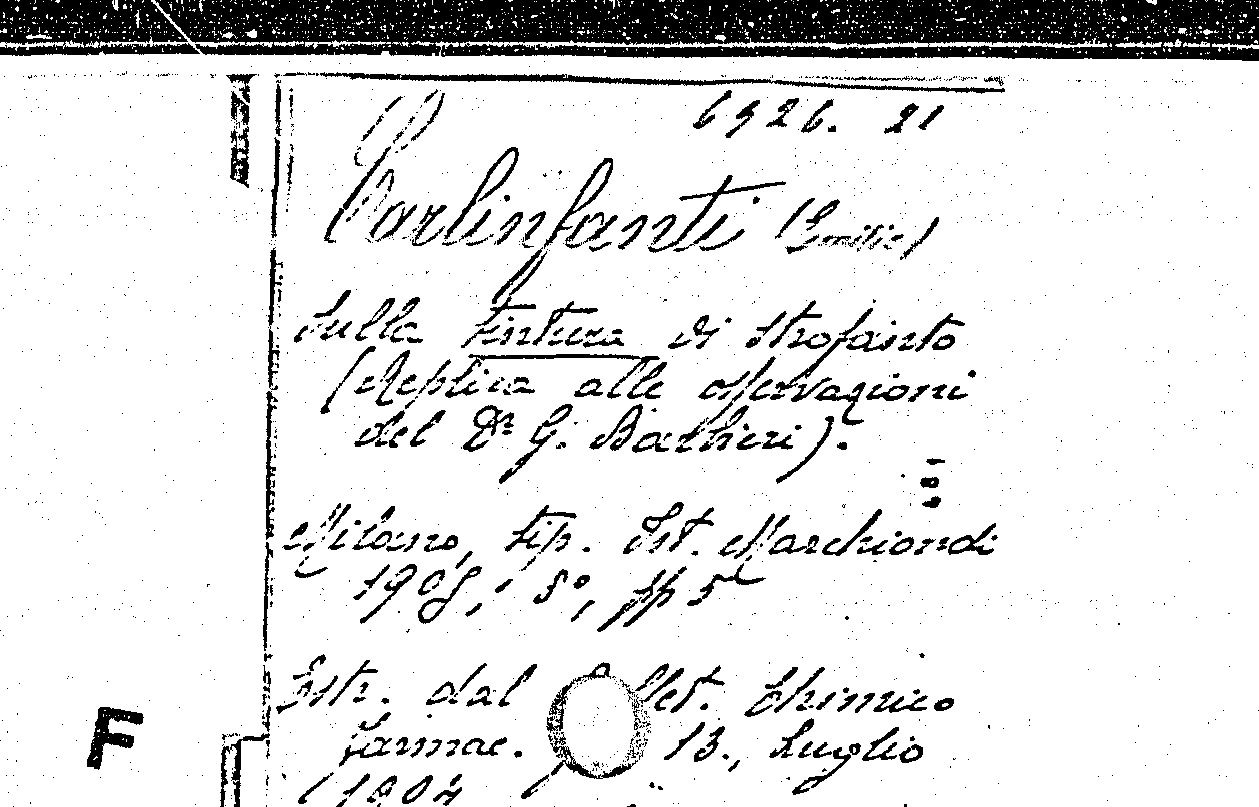 6926. 21
Carlinfanti (Emilio)
Sulla tintura di Strofanto
(Replica alle osservazioni
del Dr. G. Barbieri).
Milano, tip. Ist. Marchiondi
8°, pp 5
Estr. dal Bollet. Chimico
farmac. 13., Luglio
1904
F